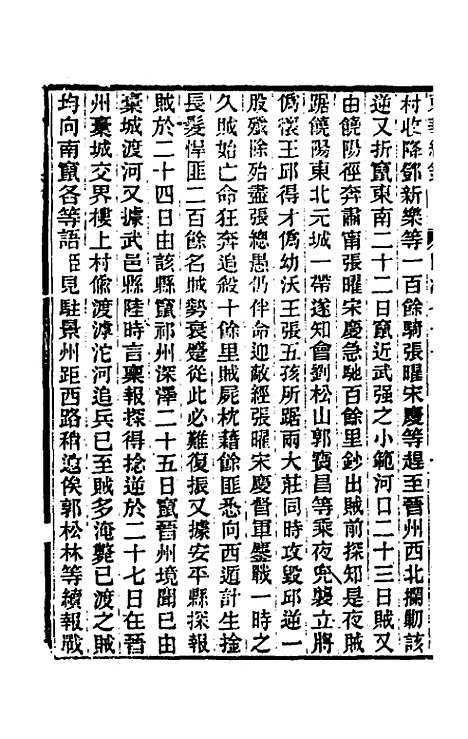 村收降鄧新樂等一百餘騎張曜宋慶等趕至晉州西北攔剿該
逆又折竄東南二十二日竄近武强之小範河口二十三日賊又
由饒陽徑奔肅甯張曜宋慶急馳百餘里鈔出賊前探知是夜賊
踞饒陽東北元城一帶遂知會劉松山郭寶昌等乘夜兜襲立將
僞懷王邱得才僞幼沃王張五孩所踞兩大莊同時攻毀邱逆一
股殲除殆盡張總愚仍伴命迎敵經張曜宋慶督軍鏖戰一時之
久賊始亡命狂奔追殺十餘里賊屍枕藉餘匪悉向西遁計生擒
長髮悍匪二百餘名賊勢衰蹙從此必難復振又據安平縣探報
賊於二十四日由該縣竄祁州深澤二十五日竄晉州境聞已由
藁城渡河又據武邑縣陸時言稟報探得捻逆於二十七日在晉
州藁城交界樓上村偷渡滹沱河追兵已至賊多淹斃已渡之賊
均向南竄各等語臣見駐景州距西路稍遠俟郭松林等續報戰